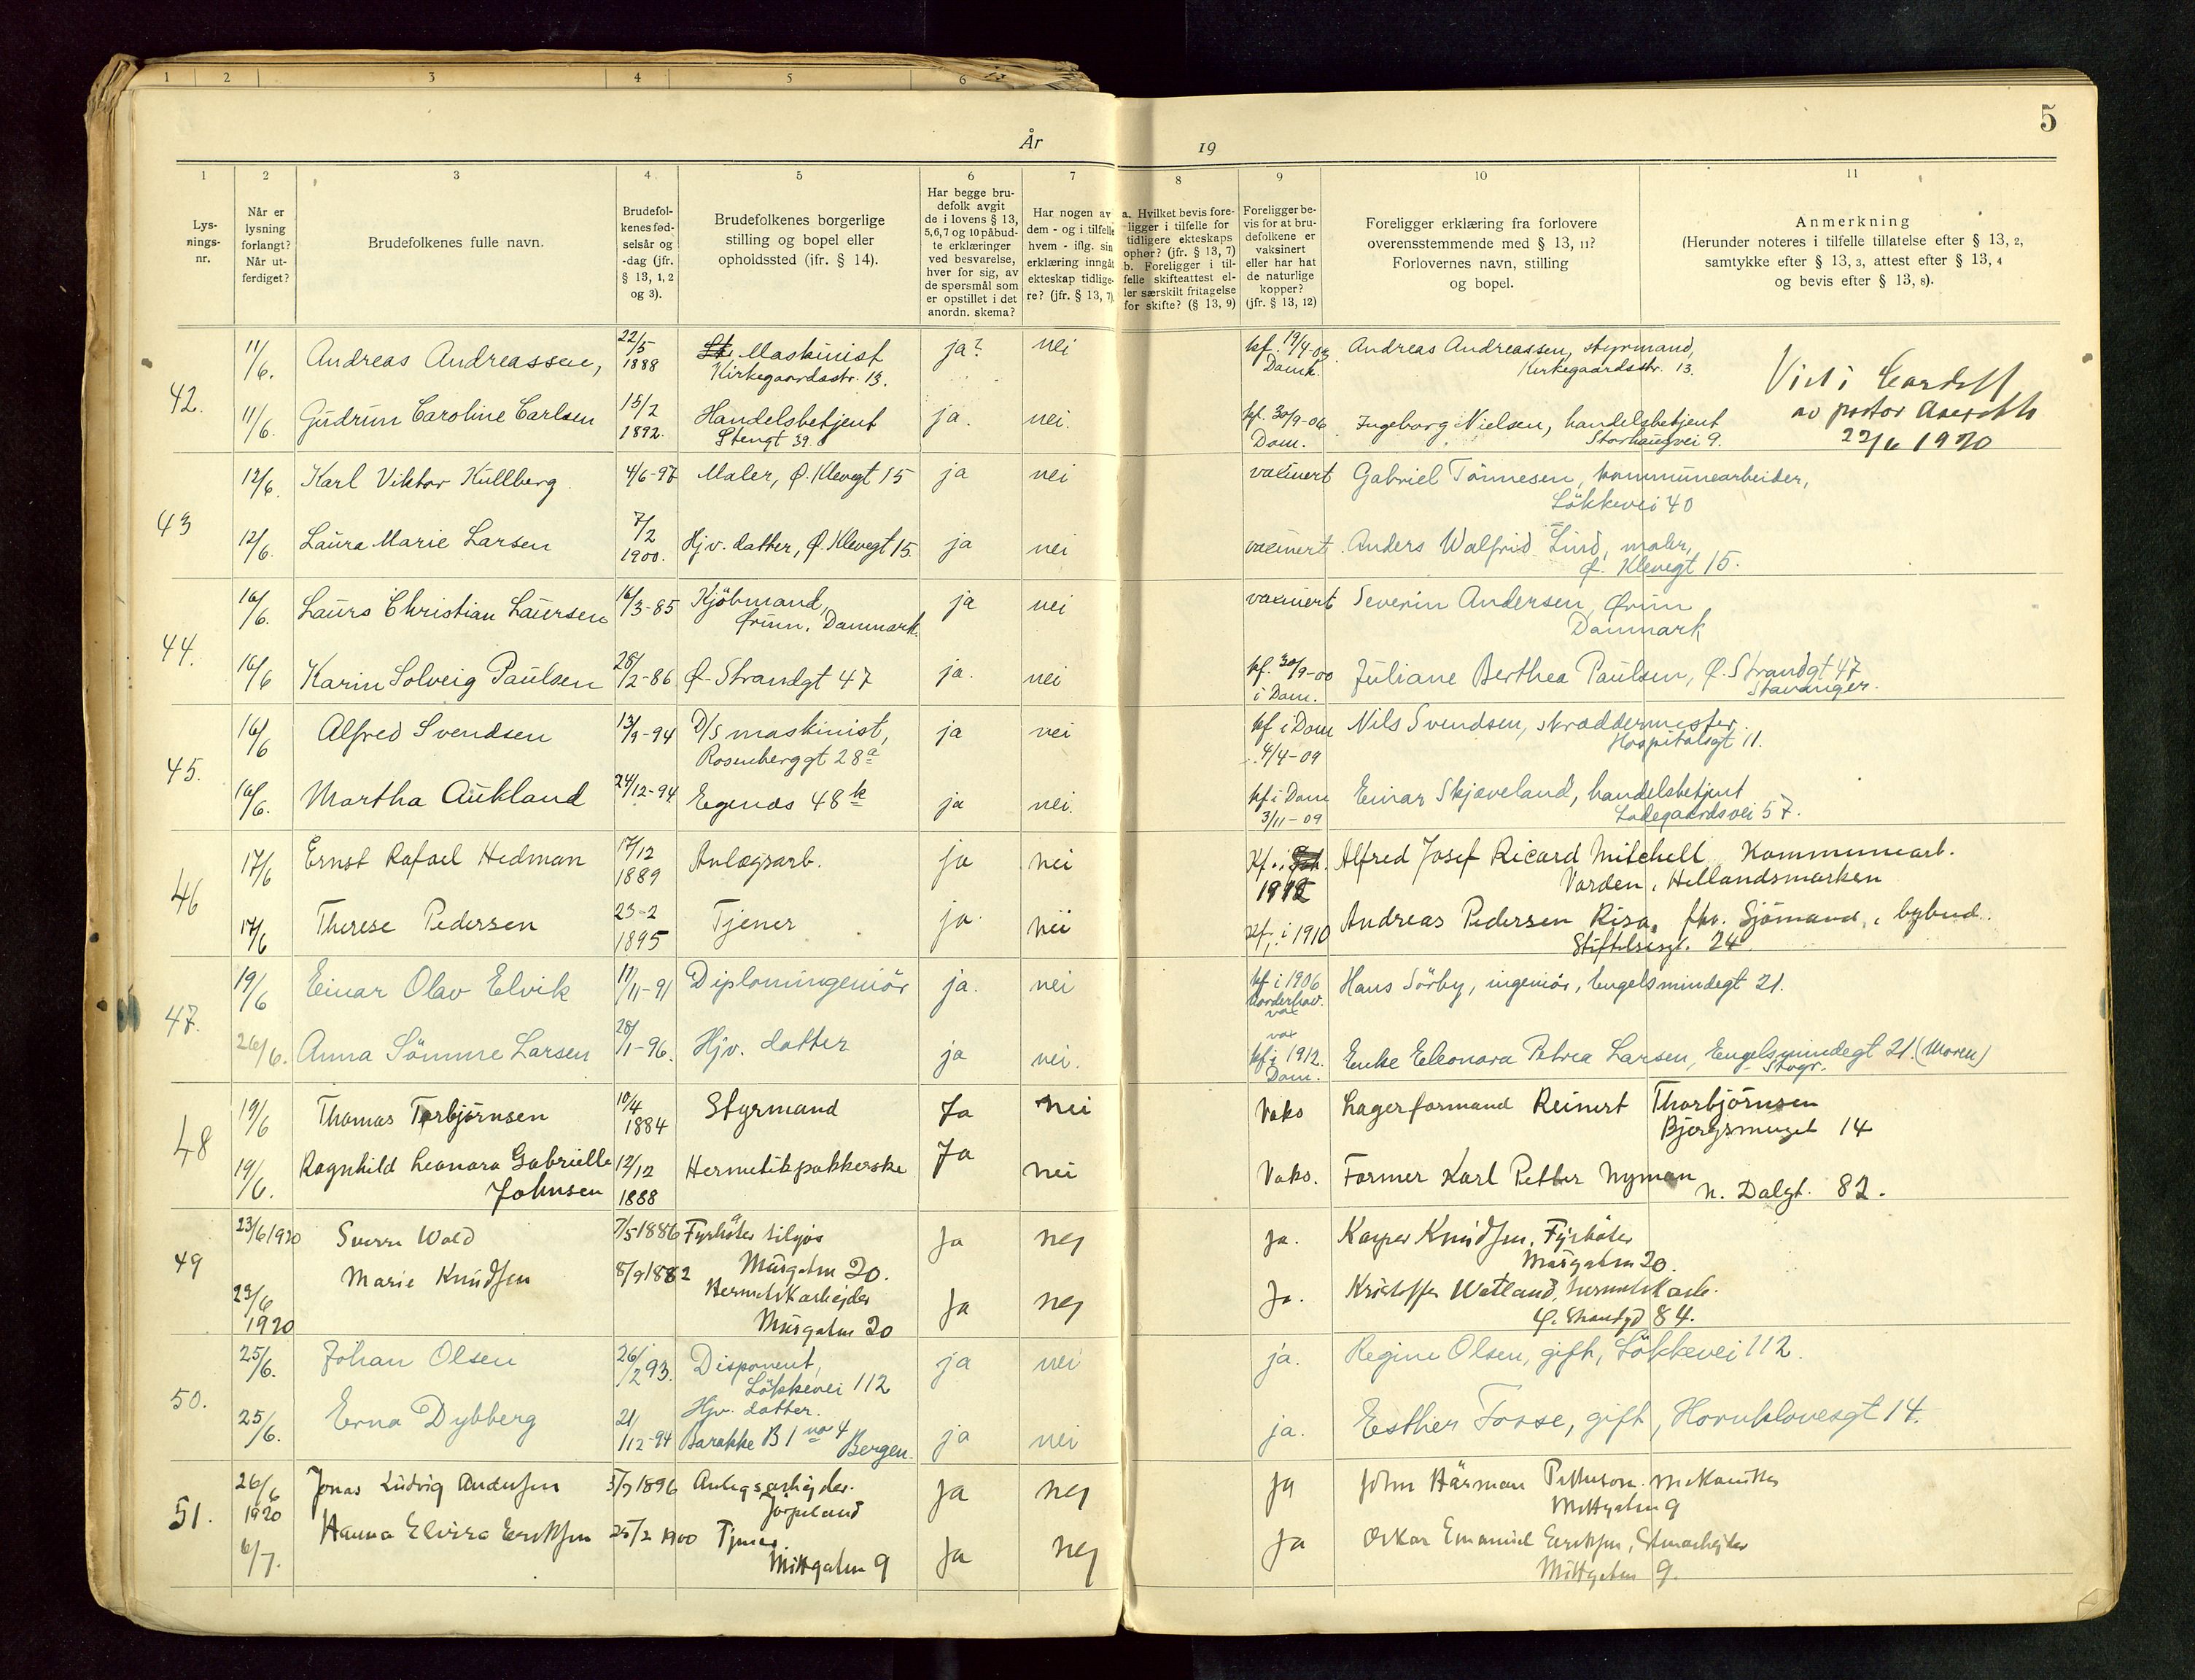 1 2 3 4 5 6
5
År 19
1 2 3 4 5 6 7 8 9 10 11
Lys-
nings-
nr.
Når er
lysning
forlangt?
Når ut-
ferdiget?
Brudefolkenes fulle navn.
Brudefol-
kenes fød-
selsår og
-dag (jfr.
§ 13, 1, 2
og 3).
Brudefolkenes borgerlige
stilling og bopel eller
opholdssted (jfr. § 14).
Har begge bru-
defolk avgit
de i lovens § 13,
5, 6, 7 og 10 påbud-
te erklæringer
ved besvarelse,
hver for sig, av
de spørsmål som
er opstillet i det
anordn. skema?
Har nogen av
dem - og i tilfelle
hvem - iflg. sin
erklæring inngåt
ekteskap tidlige-
re? (jfr. § 13, 7)
a. Hvilket bevis fore-
ligger i tilfelle for
tidligere ekteskaps
ophør? (jfr. § 13, 7)
b. Foreligger i til-
felle skifteattest el-
ler særskilt fritagelse
for skifte? (§ 13, 9)
Foreligger be-
vis for at bru-
defolkene er
vaksinert
eller har hat
de naturlige
kopper?
(jfr. § 13, 12)
Foreligger erklæring fra forlovere
overensstemmende med § 13, 11?
Forlovernes navn, stilling
og bopel.
Anmerkning
(Herunder noteres i tilfelle tillatelse efter § 13, 2,
samtykke efter § 13, 3, attest efter § 13, 4
og bevis efter § 13, 8).
42.
11/6. Andreas Andreassen, 22/5 1888 Maskinist ja? nei kf. 19/4-03 Domk. Andreas Andreassen, styrmand,
Kirkegaardsstr. 13. Kirkegaardsstr. 13.
Viet i Cardiff
av pastor
22/6 1920
11/6. Gudrun Caroline Carlsen 15/2 1892. Handelsbetjent ja. nei. kf. 30/9-06 Dom. Ingeborg Nielsen, handelsbetjent
Stengt 39. Storhaugvei 9.
43
12/6. Karl Viktor Kullberg 4/6-97 Maler, Ø. Klevegt 15 ja nei vaxinert Gabriel Tönnesen, kommunearbeider,
Lökkevei 40
12/6. Laura Marie Larsen 7/2 1900. Hjv. datter, Ø. Klevegt 15 ja nei vaxinert. Anders Walfrid Lind, maler,
Ø. Klevegt 15.
44.
16/6. Laurs Christian Laursen 16/3-85 Kjöbmand, ja nei vaxinert Severin Andersen, Ørum
Ørum, Danmark. Danmark
16/6 Karin Solveig Paulsen 28/2-86 Ø. Strandgt 47 ja. nei kf. 30/9-00 i Dom. Juliane Berthea Paulsen, Ø. Strandgt 47
Stavanger.
45.
16/6 Alfred Svendsen 13/9-94 D/S maskinist, ja nei kf i Dom 4/4-09 Nils Svendsen, skræddermester.
Rosenberggt 28a Hospitalsgt 11.
16/6. Martha Aukland 24/12-94 Egenæs 48k ja nei. kf i Dom 3/11-09 Einar Skjæveland, handelsbetjent
Ladegaardsvei 57.
46
17/6 Ernst Rafael Hedman 17/12 1889 Anlægsarb. ja nei Kf. i 1912 Alfred Josef Ricard Mitchell Kommunearb.
Varden, Hillandsmarken
17/6 Therese Pedersen 23-2 1895 Tjener ja. nei Kf. i 1910 Andreas Pedersen Risa, fhv. Sjömand, bybud.
Stiftelsesgt. 24
47.
19/6 Einar Olav Elvik 11/11-91 Diplomingeniör ja. nei kf i 1906 vax Hans Sörby, ingeniör, Engelsmindegt 21.
26/6. Anna Sömme Larsen 28/1-96. Hjv. datter ja nei. vax kf i 1912. Dom. Enke Eleonora Petrea Larsen, Engelsmindegt 21. (Moren)
Stvgr.
48
19/6 Thomas Torbjörnsen 10/4 1884 Styrmand Ja nei Vaks Lagerformand Reinert Thorbjörnsen
Bjergsmuget 14
19/6. Ragnhild Leonara Gabrielle 12/12 1888 Hermetikpakkerske Ja nei Vaks. Former Karl Petter Nyman
Johnsen N. Dalgt. 82.
49
23/6 1920 Sverre Wold 7/5 1886 Fyrböter tilsjös Ja nej Ja. Kasper Knudsen, Fyrböter
Musgaten 20. Musgaten 20.
23/6 1920 Marie Knudsen 8/9 1882 Hermetikarbejder Ja nej Ja. Kristoffer Watland, hermetikarb.
Musgaten 20 Ø. Strandgd 84.
50.
25/6. Johan Olsen 26/2 93. Disponent, ja nei ja. Regine Olsen, gift, Lökkevei 112.
Lökkevei 112
25/6. Erna Dybberg 21/12-94 Hjv. datter. ja nei ja. Esther Fosse, gift, Hornklovesgt 14.
Barakke B 1 no 4 Bergen.
51.
26/6 1920 Jonas Ludvig Andersen 5/7 1896 Anlegsarbejder. Ja nej Ja John Härman Petterson. Mekaniker
Jörpeland Midtgaten 9
6/7. Hanna Elvira Eriksen 25/2 1900 Tjener. Ja nej Ja Oskar Emanuel Eriksen,
Midtgaten 9 Midtgaten 9.